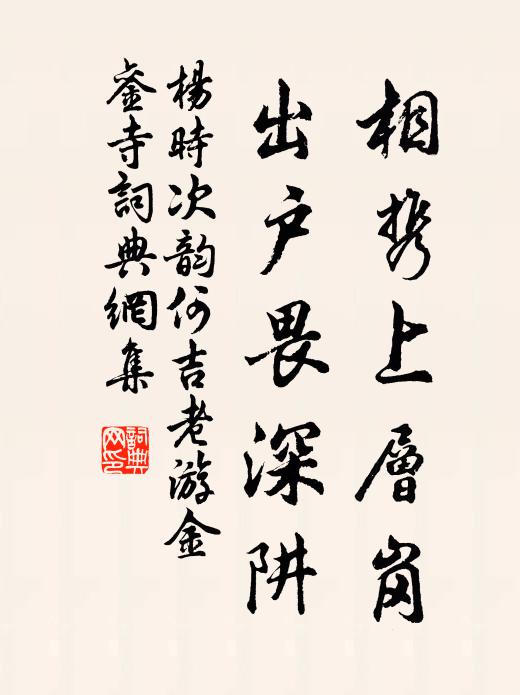 相携上層岗
出户畏深阱
楊時次韵何吉老游金
銮寺詞典網集
詞典网印